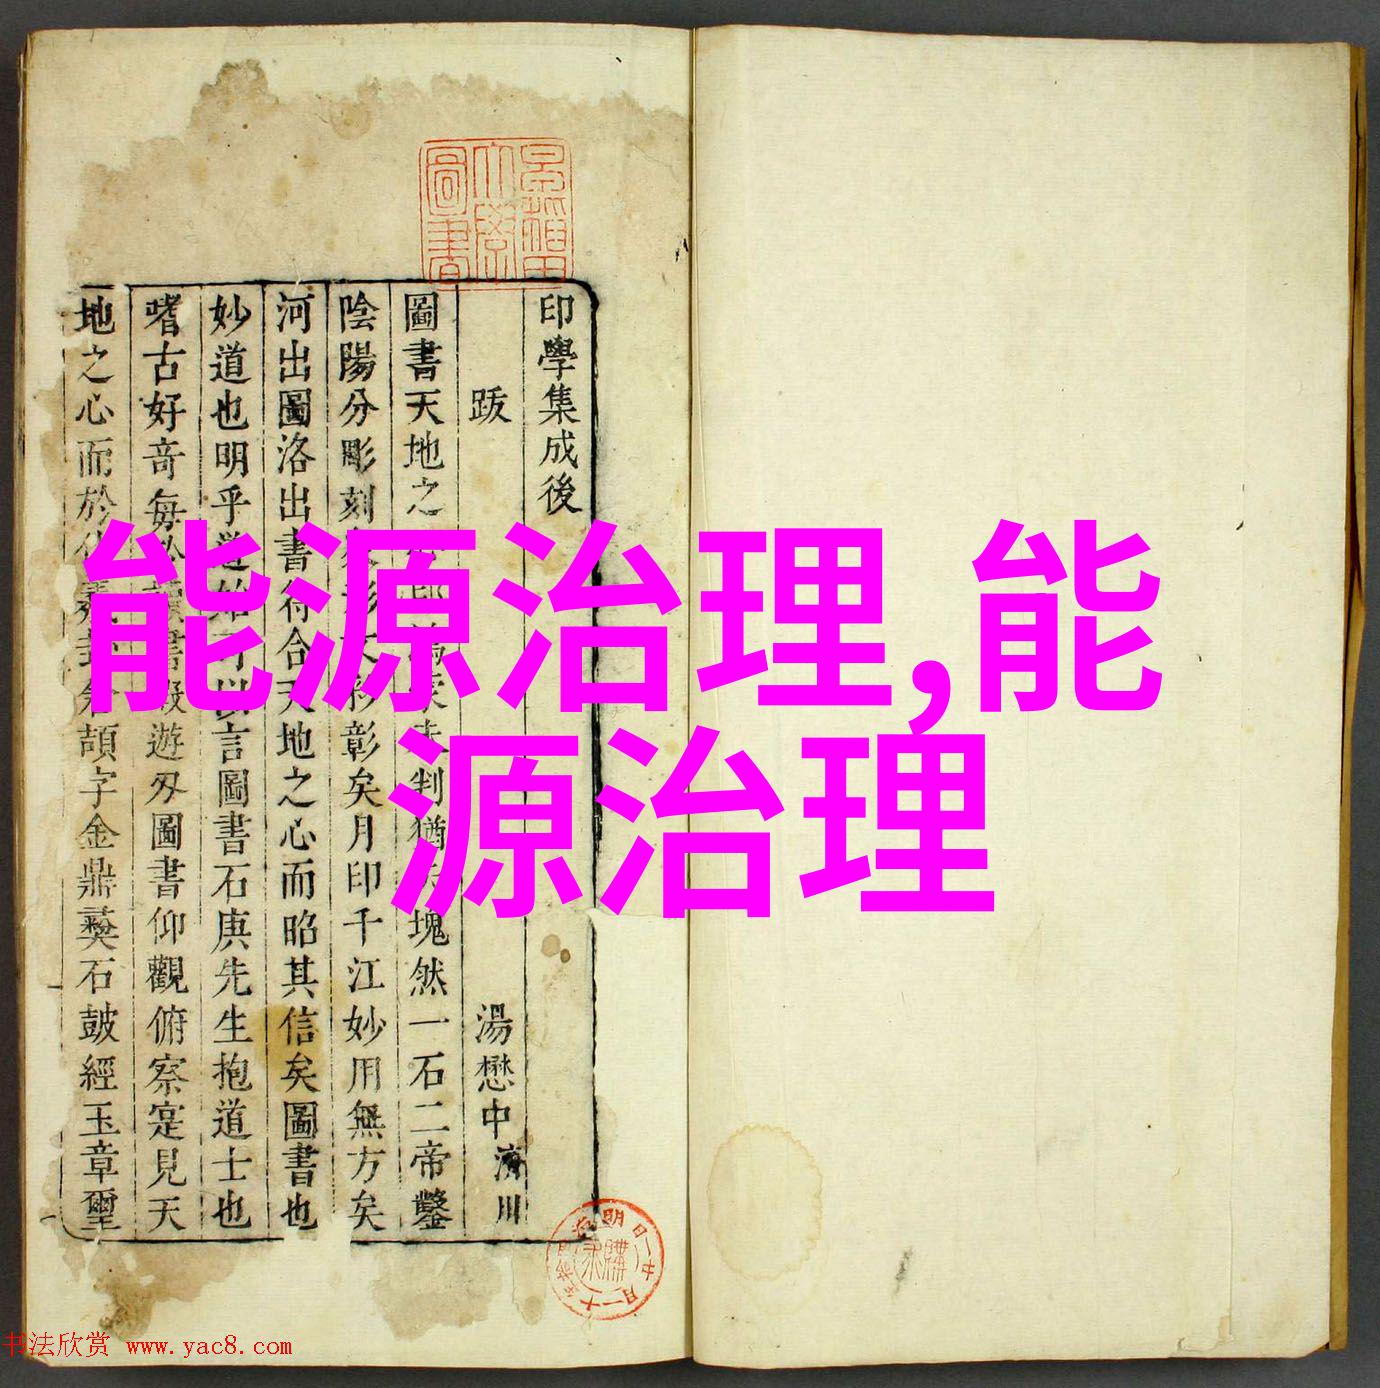 早稻田
大學
圖書
印學集成後
跋 湯懋中 濟川
圖書天地之 未判猶 塊然一石二帝鑿
陰陽分彫刻 彰矣月印千江妙用無方矣
河出圖洛出書符合天地之心而昭其信矣圖書也
妙道也明乎 始可以言圖書石庚先生抱道士也
嗜古好奇每 書暇遊刃圖書仰觀俯察寔見天
地之心而於 羲卦倉頡字金鼎彝石鼓經玉章璽
能源治理,能
源治理
书法欣赏 www.yac8.com